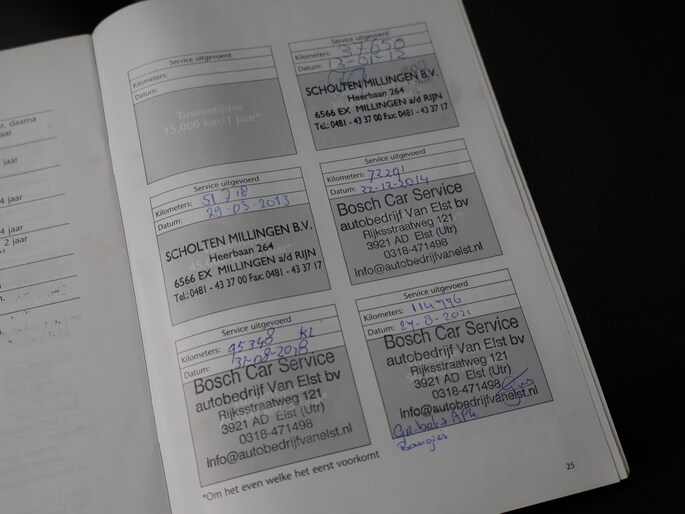 , daarna
jaar
jaar
4 jaar
4 jaar
2 jaar
Service uitgevoerd
Kilometers:
Datum:
Tussentijdse
15,000 km/1 jaar*
Service uitgevoerd
Kilometers: 37650
Datum: 13-01-12
SCHOLTEN MILLINGEN B.V.
Heerbaan 264
6566 EX MILLINGEN a/d RIJN
Tel.: 0481 - 43 37 00 Fax: 0481 - 43 37 17
Service uitgevoerd
Kilometers: 51 718
Datum: 29-03-2013
SCHOLTEN MILLINGEN B.V.
Heerbaan 264
6566 EX MILLINGEN a/d RIJN
Tel.: 0481 - 43 37 00 Fax: 0481 - 43 37 17
Service uitgevoerd
Kilometers: 73291
Datum: 22-12-2014
Bosch Car Service
autobedrijf Van Elst bv
Rijksstraatweg 121
3921 AD Elst (Utr)
0318-471498
info@autobedrijfvanelst.nl
Service uitgevoerd
Kilometers: 95348
Datum: 31-08-2018
Bosch Car Service
autobedrijf Van Elst bv
Rijksstraatweg 121
3921 AD Elst (Utr)
0318-471498
info@autobedrijfvanelst.nl
Service uitgevoerd
Kilometers: 114996
Datum: 27-8-2021
Bosch Car Service
autobedrijf Van Elst bv
Rijksstraatweg 121
3921 AD Elst (Utr)
0318-471498
info@autobedrijfvanelst.nl
*Om het even welke het eerst voorkomt
25